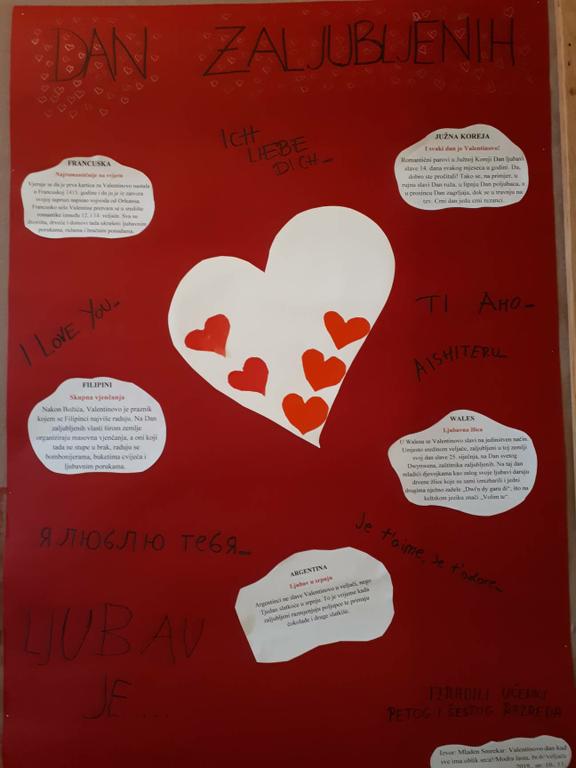 DAN ZALJUBLJENIH
ICH
LIEBE
DICH...
FRANCUSKA
Najromantičnije na svijetu
Vjeruje se da je prva kartica za Valentinovo nastala
u Francuskoj 1415. godine i da ju je iz zatvora
svojoj supruzi napisao vojvoda od Orleansa.
Francusko selo Valentine pretvara se u središte
romantike između 12. i 14. veljače. Sva su
dvorišta, drveće i domovi tada ukrašeni ljubavnim
porukama, ružama i bračnim ponudama.
JUŽNA KOREJA
I svaki dan je Valentinovo!
Romantični parovi u Južnoj Koreji Dan ljubavi
slave 14. dana svakog mjeseca u godini. Da,
dobro ste pročitali! Tako se, na primjer, u
rujnu slavi Dan ruža, u lipnju Dan poljubaca, a
u prosincu Dan zagrljaja, dok se u travnju na
tzv. Crni dan jedu crni rezanci.
I LOVE YOU...
TI AMO...
AISHITERU
FILIPINI
Skupna vjenčanja
Nakon Božića, Valentinovo je praznik
kojem se Filipinci najviše raduju. Na Dan
zaljubljenih vlasti širom zemlje
organiziraju masovna vjenčanja, a oni koji
tada ne stupe u brak, raduju se
bombonjerama, buketima cvijeća i
ljubavnim porukama.
WALES
Ljubavna žlica
U Walesu se Valentinovo slavi na jedinstven način.
Umjesto sredinom veljače, zaljubljeni u toj zemlji
svoj dan slave 25. siječnja, na Dan svetog
Dwynwena, zaštitnika zaljubljenih. Na taj dan
mladići djevojkama kao zalog svoje ljubavi daruju
drvene žlice koje su sami izrezbarili i jedni
drugima nježno zažele „Dwi'n dy garu di“, što na
keltskom jeziku znači „Volim te“.
Я ЛЮБЛЮ ТЕБЯ...
Je t'aime, je t'adore...
ARGENTINA
Ljubav u srpnju
Argentinci ne slave Valentinovo u veljači, nego
Tjedan slatkoće u srpnju. To je vrijeme kada
zaljubljeni razmjenjuju poljupce te primaju
čokolade i druge slatkiše.
LJUBAV
JE ...
IZRADILI UČENICI
PETOG I ŠESTOG RAZREDA
Izvor: Mladen Smrekar: Valentinovo dan kad
sve ima oblik srca!/Modra lasta, br.6/veljača